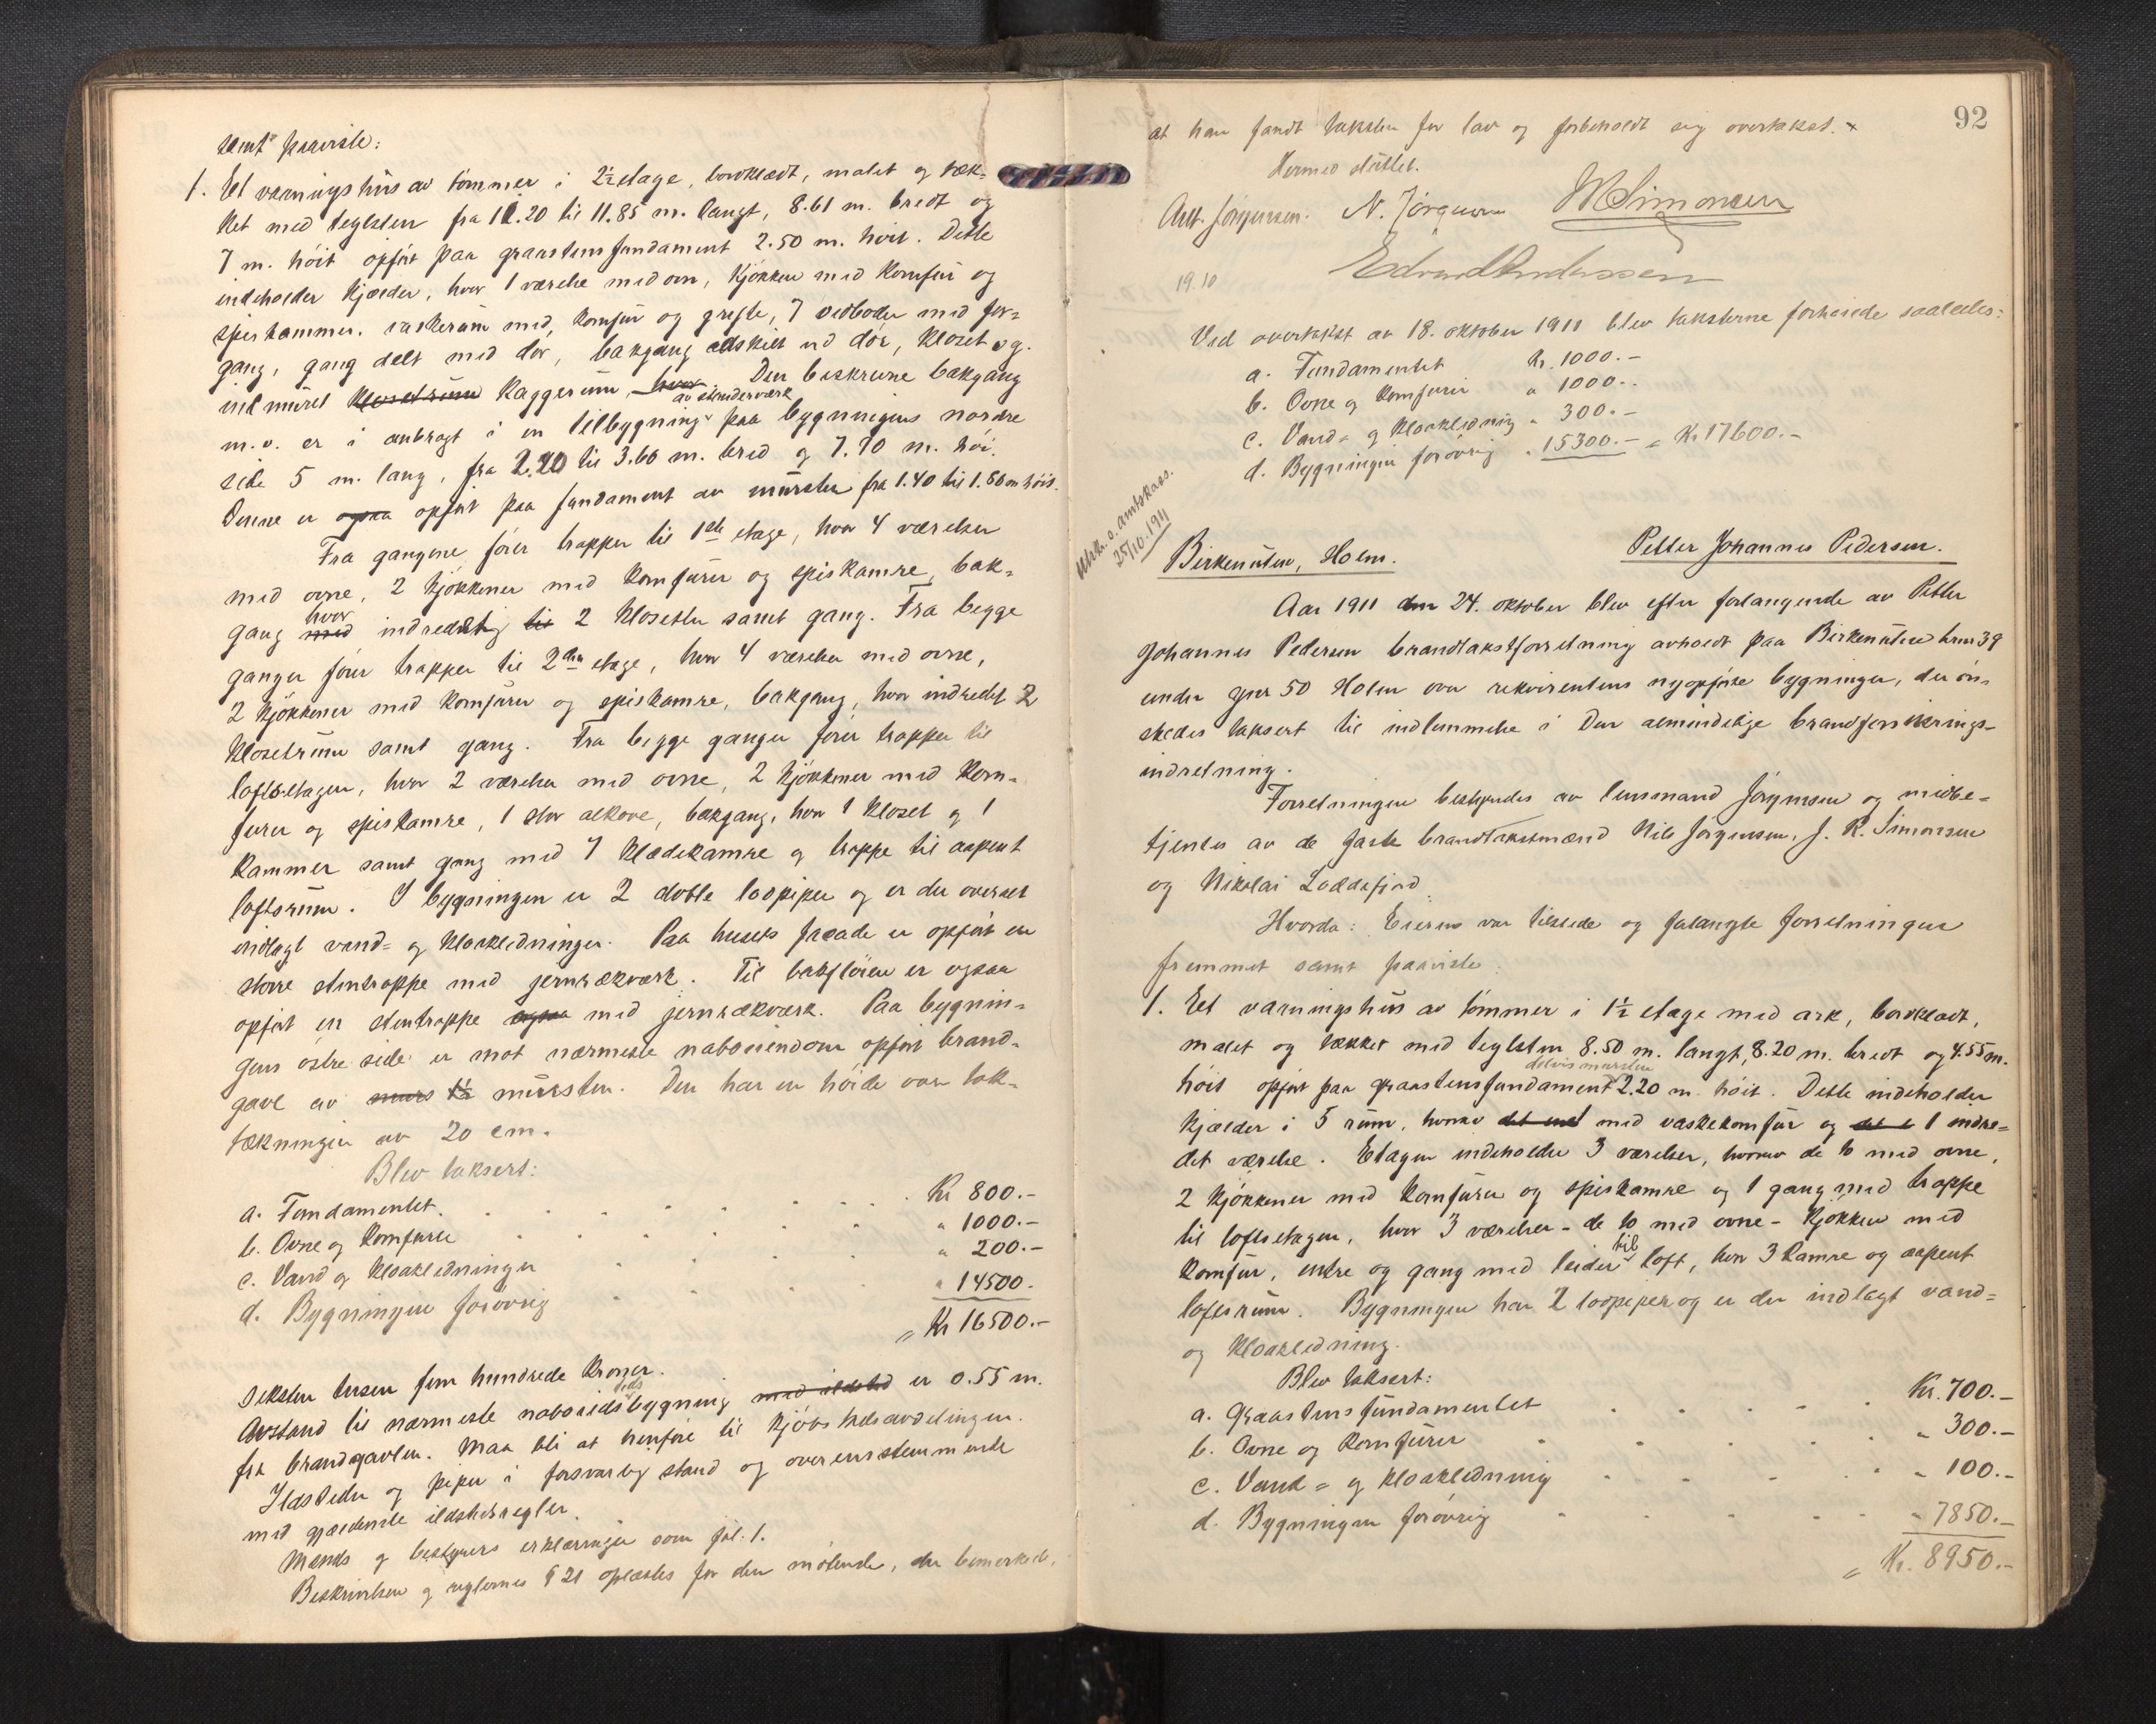 samt paaviste:
1. Et vaaningshus av tømmer i 2½ etage, bordklædt, malet og tæk=
ket med teglsten fra 11.20 til 11.85 m. langt, 8.61 m. bredt og
7 m. høit opført paa graastensfundament 2.50 m. høit. Dette
indeholder kjælder, hvor 1 værelse med ovn, kjøkken med komfur og
spiskammer, vaskerum med komfur og gryte, 7 vedboder med for=
gang, gang delt med dør, bakgang adskilt ved dør, kloset og
indmuret klosetrum kaggerum, hvor. Den beskrevne bakgang
av stenderverk
m.v. er i anbragt i en tilbygning paa bygningens nordre
side 5 m. lang, fra 2.20 til 3.60 m. bred og 7.70 m. høi.
Denne er ogsaa opført paa fundament av mursten fra 1.40 til 1.80 m høit.
Fra gangene fører trapper til 1ste etage, hvor 4 værelser
med ovne, 2 kjøkkener med komfurer og spiskamre, bak=
hvor
gang med indredet til 2 klosetter samt gang. Fra begge
ganger fører trapper til 2den etage, hvor 4 værelser med ovne,
2 kjøkkener med komfurer og spiskamre, bakgang, hvor indredet 2
klosetrum samt gang. Fra begge ganger fører trapper til
loftsetagen, hvor 2 værelser med ovne, 2 kjøkkener med kom=
furer og spiskamre, 1 stor alkove, bakgang, hvor 1 kloset og 1
kammer samt gang med 7 klædekamre og trappe til aapent
loftsrum. I bygningen er 2 doble lodpiper og er der overalt
indlagt vand= og kloakledninger. Paa husets facade er opført en
større stentrappe med jernrækværk. Til bakfløien er ogsaa
opført en stentrappe ogsaa med jernrækværk. Paa bygnin=
gens østre side er mot nærmeste naboeiendom opført brand=
gavl av murs 1½ mursten. Den har en høide over tak=
tækningen av 20 cm.
Blev taksert:
a. Fundamentet . . . . . . Kr 800.-
b. Ovne og komfurer . . . . . " 1000.-
c. Vand og kloakledninger . . . . " 200.-
d. Bygningen forøvrig . . . . " 14500.-
= Kr 16500.-
Seksten tusen fem hundrede kroner.
Avstand til nærmeste naboildstedsbygning med ildsted er 0.55 m.
fra brandgavlen. Maa bli at henføre til kjøbstadsavdelingen.
Ildsteder og piper i forsvarlig stand og overensstemmende
med gjældende ildstedsregler.
Mænds og bestyrers erklæringer som fol. 1.
Beskrivelsen og reglernes § 21 oplæstes for den møtende, der bemerkede,
92
at han fandt taksten for lav og forbeholdt sig overtakst. x
Hermed sluttet.
Ant. Jørgensen. N. Jørgensen JR Simonsen
19.10 Edvard Andersen
Ved overtakst av 18. oktober 1911 blev taksterne forhøiede saaledes:
a. Fundamentet Kr. 1000.-
b. Ovne og komfurer " 1000.-
c. Vand= og kloakledning " 300.-
d. Bygningen forøvrig " 15300.- = Kr 17600.-
Utsk. s. amtskass.
25/10. 1911
Birkenuten, Holm. Petter Johannes Pedersen.
Aar 1911 den 24. oktober blev efter forlangende av Petter
Johannes Pedersen brandtakstforretning avholdt paa Birkenuten brnr 39
under gnr 50 Holm over rekvirentens nyopførte bygninger, der øn=
skedes taksert til indlemmelse i Den almindelige brandforsikrings=
indretning.
Forretningen bestyredes av lensmand Jørgensen og midbe=
tjentes av de faste brandtakstmænd Nils Jørgensen, J. R. Simonsen
og Nikolai Loddefjord.
Hvorda: Eieren var tilstede og forlangte forretningen
fremmet samt paaviste:
1. Et vaaningshus av tømmer i 1½ etage med ark, bordklædt,
malet og tækket med teglsten 8.50 m. langt, 8.20 m. bredt og 4.55 m.
delvis mursten
høit opført paa graastensfundament 2.20 m. høit. Dette indeholder
kjælder i 5 rum, hvorav det ene 1 med vaskekomfur og det e 1 indre=
det værelse. Etagen indeholder 3 værelser, hvorav de to med ovne,
2 kjøkkener med komfurer og spiskamre og 1 gang med trappe
til loftsetagen, hvor 3 værelser - de to med ovne - kjøkken med
til
komfur, entre og gang med leider loft, hvor 3 kamre og aapent
loftsrum. Bygningen har 2 lodpiper og er der indlagt vand=
og kloakledning.
Blev taksert:
a. Graastensfundamentet . . . . Kr. 700.-
b. Ovne og komfurer . . . . . " 300.-
c. Vand= og kloakledning . . . . " 100.-
d. Bygningen forøvrig . . . . . " 7850.-
= Kr. 8950.-